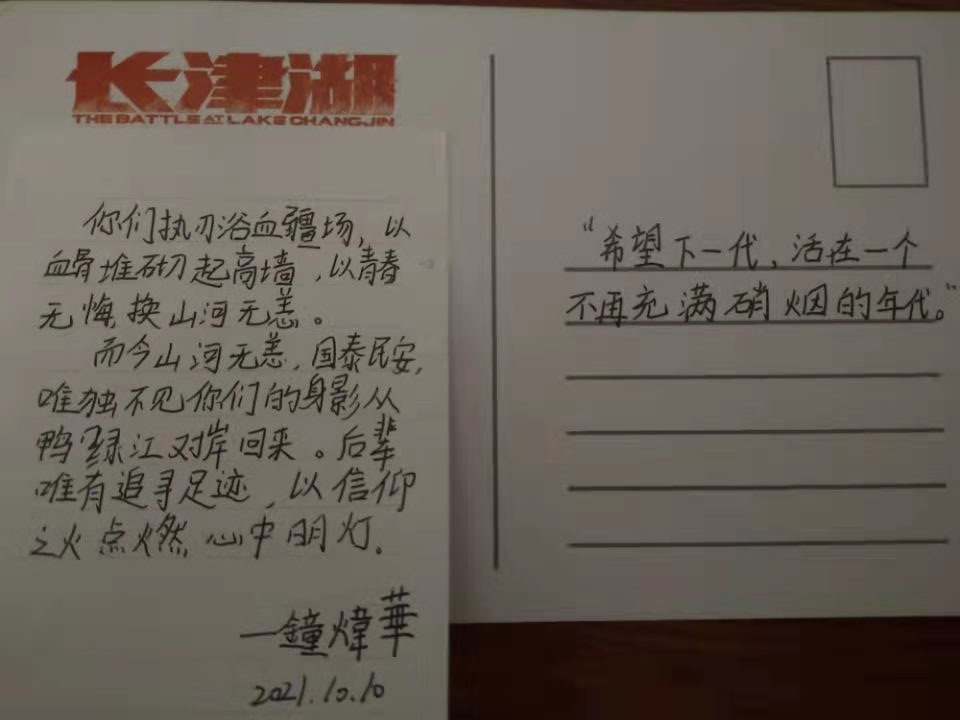 长津湖
THE BATTLE AT LAKE CHANGJIN
你们执刃浴血疆场，以
血骨堆砌起高墙，以青春
无悔，换山河无恙。
而今山河无恙，国泰民安，
唯独不见你们的身影从
鸭绿江对岸回来。后辈
唯有追寻足迹，以信仰
之火点燃心中明灯。
—鐘煒華
2021.10.10
“希望下一代，活在一个
不再充满硝烟的年代。”